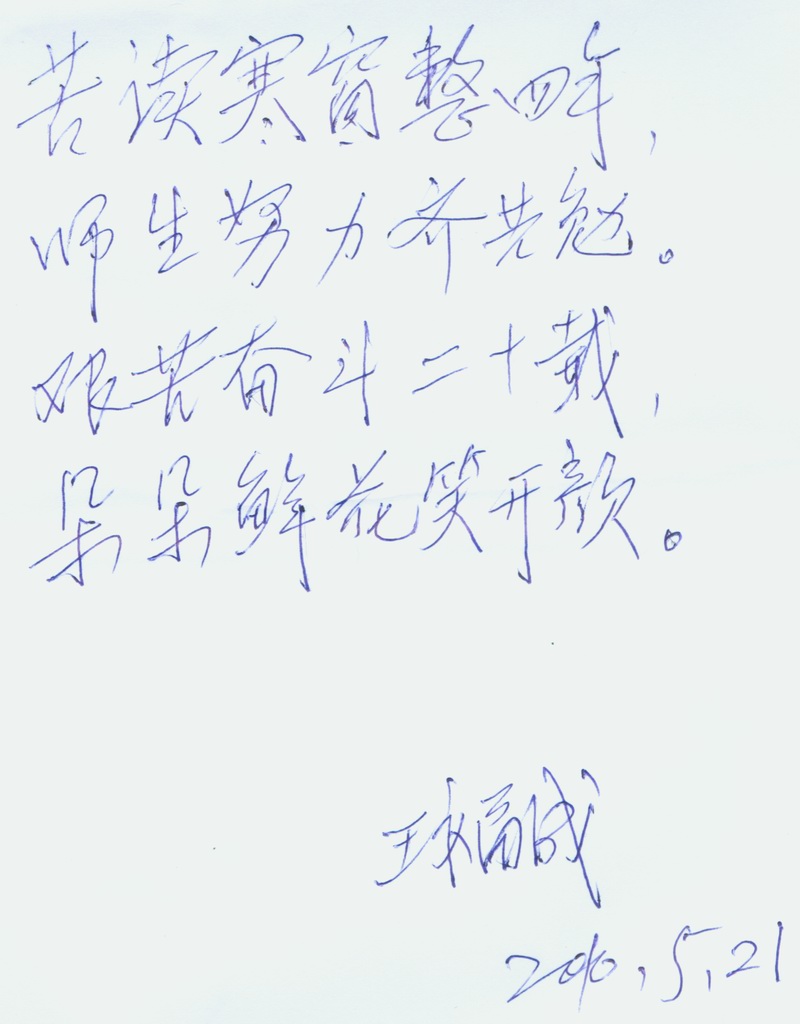 苦读寒窗整四年,
师生努力齐共勉。
艰苦奋斗二十载,
朵朵鲜花笑开颜。
2010.5.21